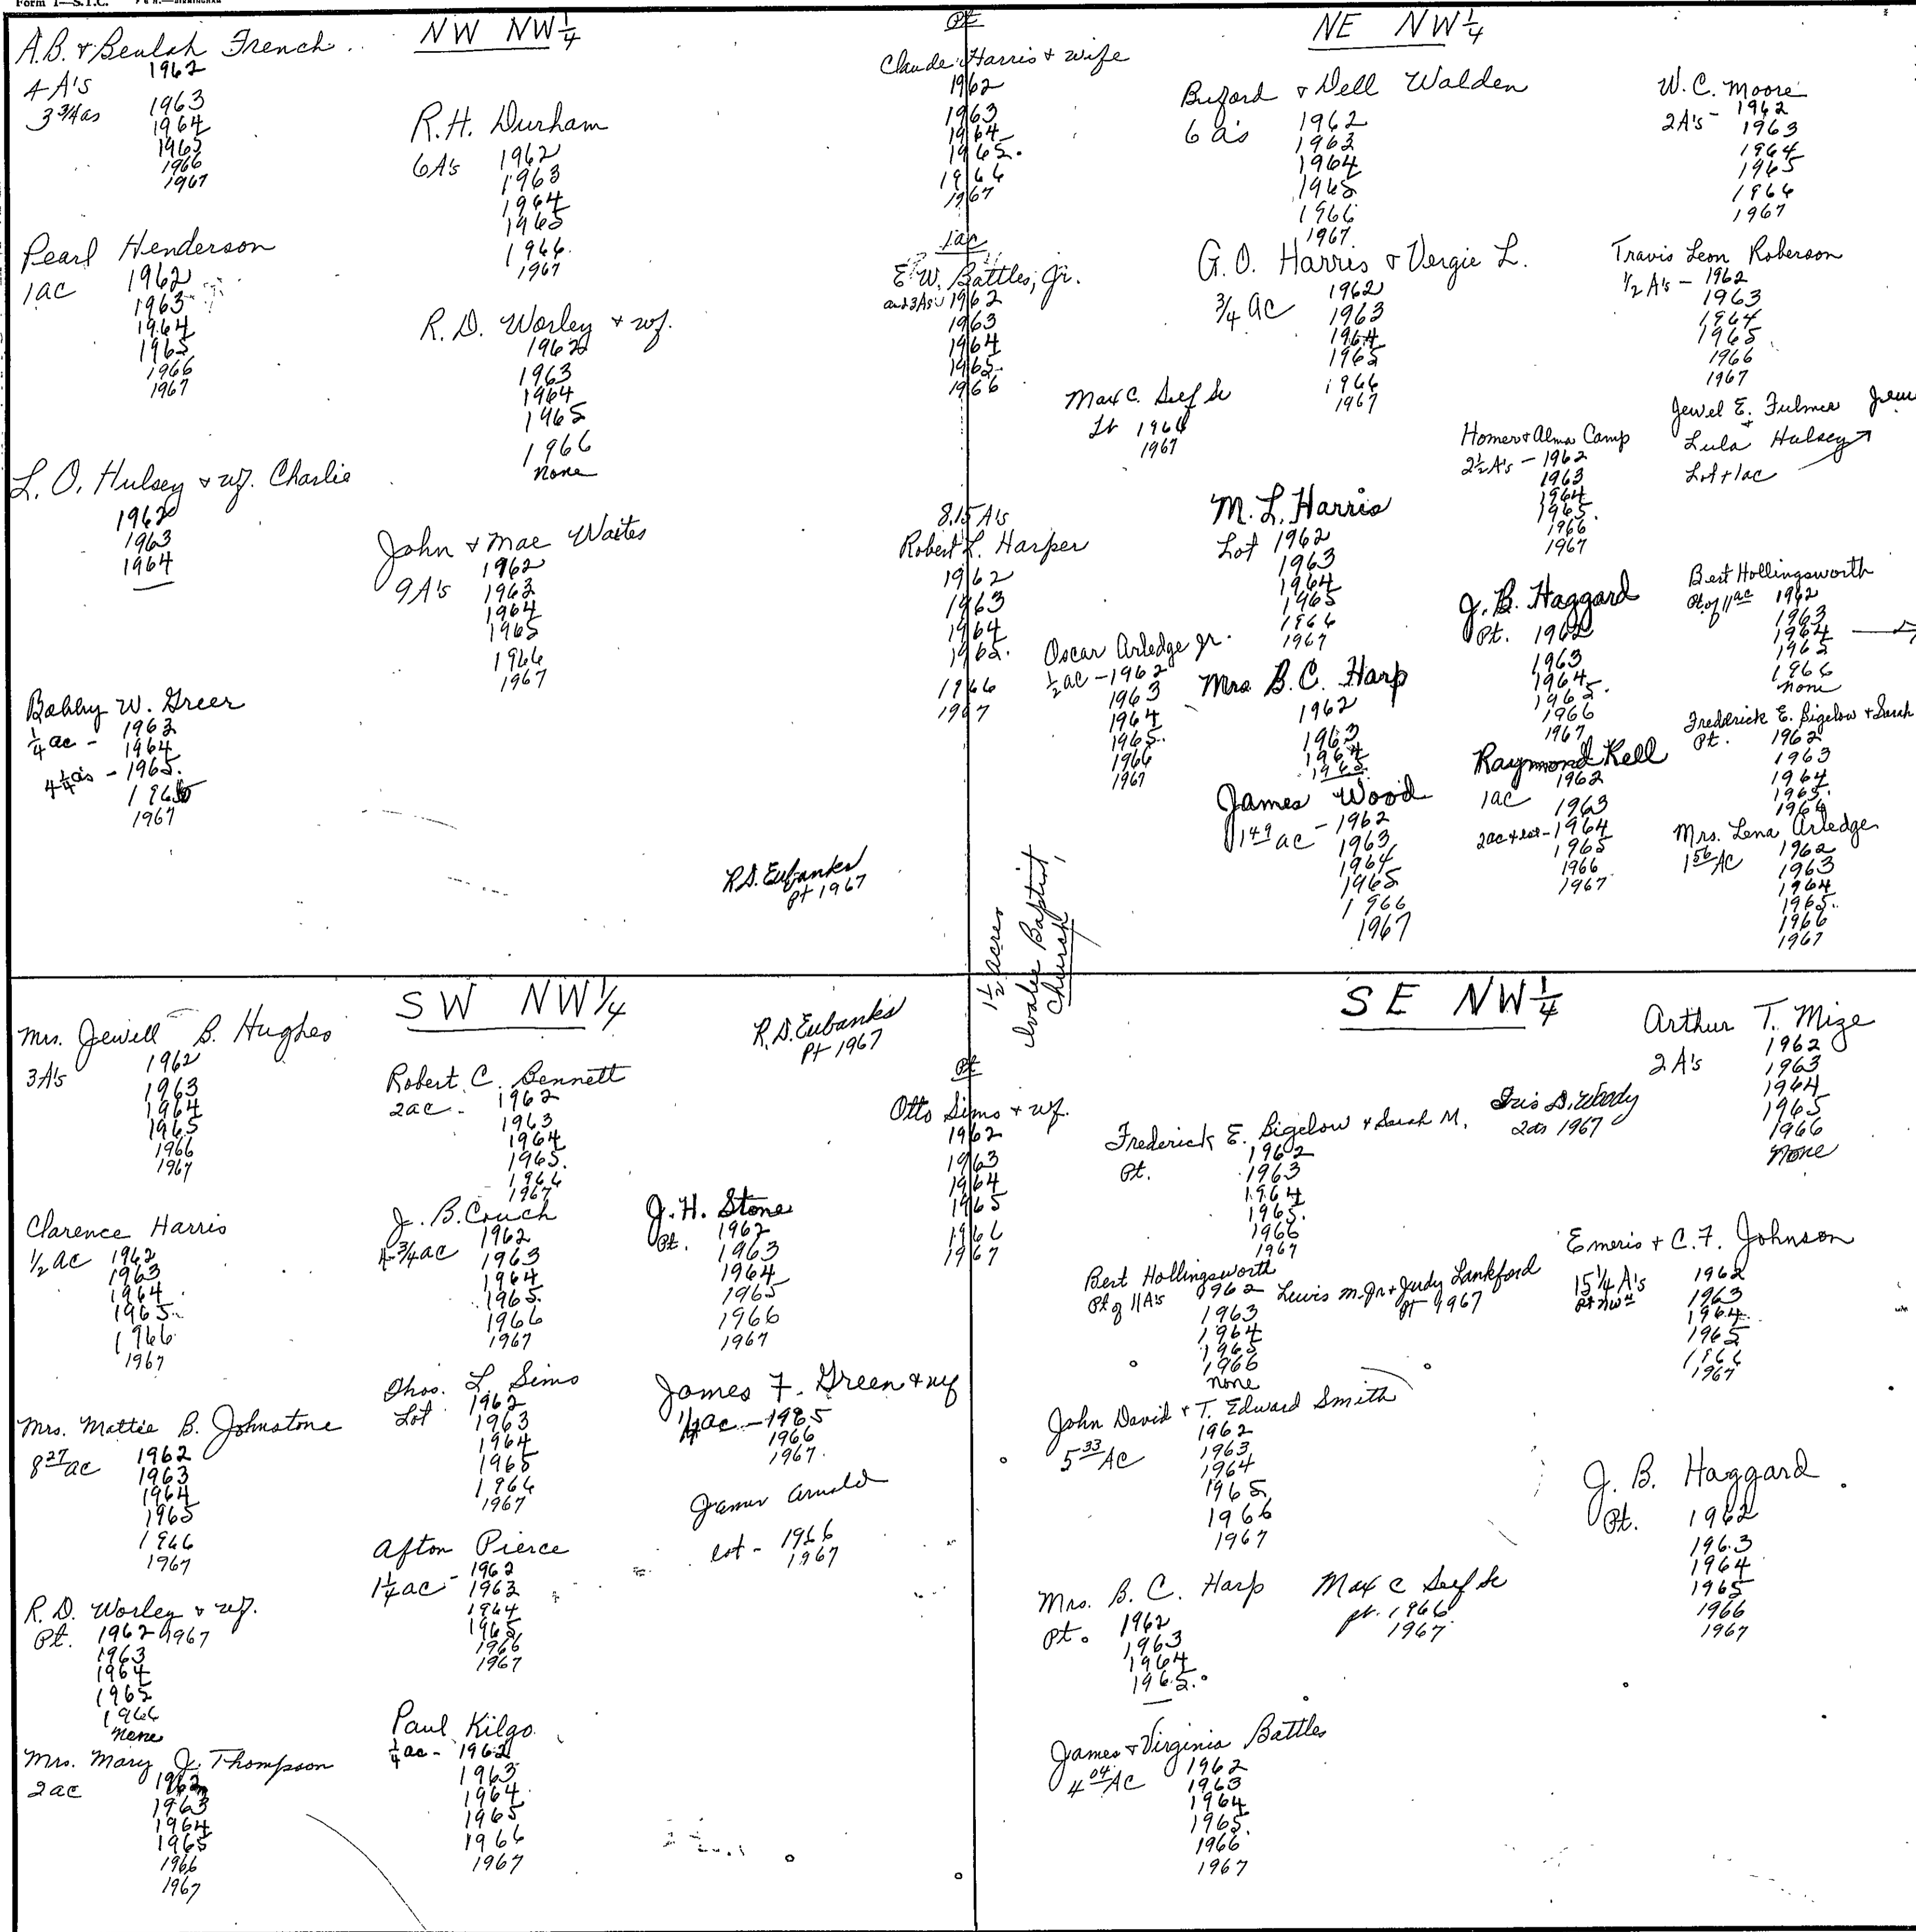 Form 1—S.T.C.
NW NW 1/4
A.B. & Beulah French
1962
4 A's
3 3/4 as
1963
1964
1965
1966
1967
Pearl Henderson
1962
1ac
1963
1964
1965
1966
1967
L. O. Hulsey & wf. Charlie
1962
1963
1964
Bobby W. Greer
1963
1/4 ac -
1964
4 1/4 a's - 1965.
1966
1967
R.H. Durham
6A's 1962
1963
1964
1965
1966.
1967
R. D. Worley & wf.
1962
1963
1964
1965
1966
none
John & Mae Waites
1962
9A's 1963
1964
1965
1966
1967
R.D. Eubanks
Pt 1967
Pt
Claude Harris & wife
1962
1963
1964
1965.
1966
1967
1ac
E. W. Battles, Jr.
and 3As 1962
1963
1964
1965.
1966
8.15 A's
Robert L. Harper
1962
1963
1964
1965.
1966
1967
1 1/2 acres
Ivalee Baptist
Church
NE NW 1/4
Buford & Dell Walden
6 a's 1962
1963
1964
1965
1966
1967
G. O. Harris & Vergie L.
3/4 ac 1962
1963
1964
1965
1966
1967
Max C.
1966
1967
M. L. Harris
Lot 1962
1963
1964
1965
1966
1967
Oscar Arledge Jr.
1/2 ac - 1962
1963
1964
1965.
1966
1967
Mrs B. C. Harp
1962
1963
1964
1965
James Wood
1 49 ac - 1962
1963
1964
1965
1966
1967
W. C. Moore
2A's - 1962
1963
1964
1965
1966
1967
Travis Leon Roberson
1/2 A's - 1962
1963
1964
1965
1966
1967
Jewel E. Fulmer
&
Lula Hulsey
Lot + 1ac
Homer & Alma Camp
2 1/2 A's - 1962
1963
1964
1965.
1966
1967
J. B. Haggard
Pt. 1962
1963
1964
1965.
1966
1967
Raymond Kell
1962
1ac 1963
2ac & lot - 1964
1965
1966
1967
Bert Hollingsworth
Pt of 11 ac 1962
1963
1964
1965
1966
none
Frederick E. Bigelow & Sarah
Pt. 1962
1963
1964
1965.
1966
Mrs. Lena Arledge
1 56 AC 1962
1963
1964
1965.
1966
1967
SW NW 1/4
Mrs. Jewell B. Hughes
1962
3A's
1963
1964
1965
1966
1967
Clarence Harris
1/2 ac 1962
1963
1964
1965
1966
1967
Mrs. Mattie B. Johnstone
8 27 ac 1962
1963
1964
1965
1966
1967
R. D. Worley & wf.
Pt. 1962 1967
1963
1964
1965
1966
none
Mrs. Mary J. Thompson
2ac 1962
1963
1964
1965
1966
1967
Robert C. Bennett
2ac - 1962
1963
1964
1965.
1966
1967
J. B. Couch
1962
3/4 ac 1963
1964
1965.
1966
1967
Thos. L. Sims
1962
Lot 1963
1964
1965
1966
1967
Afton Pierce
1962
1 1/4 ac - 1963
1964
1965
1966
1967
Paul Kilgo
1/4 ac - 1962
1963
1964
1965
1966
1967
R.D. Eubanks
Pt 1967
J. H. Stone
1962
Pt. 1963
1964
1965
1966
1967
James F. Green & wf
ac - 1965
1966
1967.
James Arnold
lot - 1966
1967
Pt
Otto Sims & wf.
1962
1963
1964
1965
1966
1967
SE NW 1/4
Frederick E. Bigelow & Sarah M.
1962
Pt. 1963
1964
1965.
1966
1967
Iris D. Woody
2as 1967
Bert Hollingsworth
Pt of 11A's 1962
1963
1964
1965
1966
none
Lewis M. Jr & Judy Lankford
Pt 1967
John David & T. Edward Smith
1962
5 33 AC 1963
1964
1965
1966
1967
Mrs. B. C. Harp
Pt. 1962
1963
1964
1965.
Max C
pt. 1966
1967
James & Virginia Battles
1962
4 04 AC 1963
1964
1965.
1966
1967
Arthur T. Mize
1962
2 A's 1963
1964
1965
1966
none
Emeris & C. F. Johnson
15 1/4 A's 1962
1963
1964
1965
1966
1967
J. B. Haggard
Pt. 1962
1963
1964
1965
1966
1967